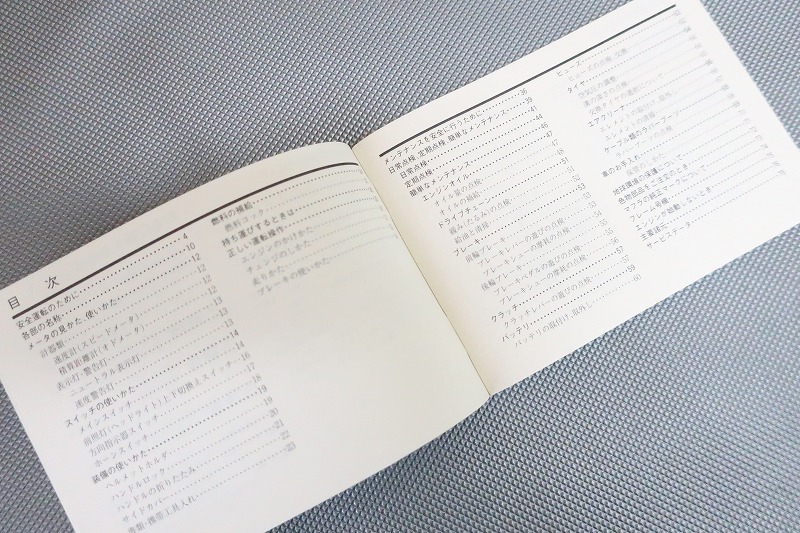 目 次
安全運転のために 4
各部の名称 10
メータの見かた、使いかた 12
計器類 12
速度計(スピードメータ) 12
積算距離計(オドメータ) 12
表示灯・警告灯 13
ニュートラル表示灯 13
速度警告灯 13
スイッチの使いかた 14
メインスイッチ 14
前照灯(ヘッドライト)上下切換えスイッチ 16
方向指示器スイッチ 17
ホーンスイッチ 18
装備の使いかた 18
ヘルメットホルダ 19
ハンドルロック 20
ハンドルの折りたたみ 21
サイドカバー 22
書類・携帯工具入れ
燃料の補給
燃料コック
持ち運びするときは
正しい運転操作
エンジンのかけかた
チェンジのしかた
走りかた
ブレーキの使いかた
メンテナンスを安全に行うために 36
日常点検、定期点検、簡単なメンテナンス 39
日常点検 41
定期点検 44
簡単なメンテナンス 46
エンジンオイル 47
オイルの点検
オイルの補給
ドライブチェーン 51
緩み(たるみ)の点検
給油と清掃
ブレーキ 53
前輪ブレーキレバーの遊びの点検
前輪ブレーキシューの摩耗の点検
後輪ブレーキペダルの遊びの点検
ブレーキシューの摩耗の点検
クラッチ
クラッチレバーの遊びの点検 59
バッテリ
バッテリの取付け、取外し 60
ヒューズ
ヒューズの点検、交換
タイヤ
空気圧の調整
溝の深さの点検
交換タイヤの選択について
エアクリーナ
エレメントの取付け、取外し
エレメントの清掃
ケーブル類のラバーブーツ
車のお手入れ
地球環境の保護について
色物部品をご注文のとき
マフラの純正マークについて
フレーム号機
エンジンが始動しないとき
主要諸元
サービスデータ